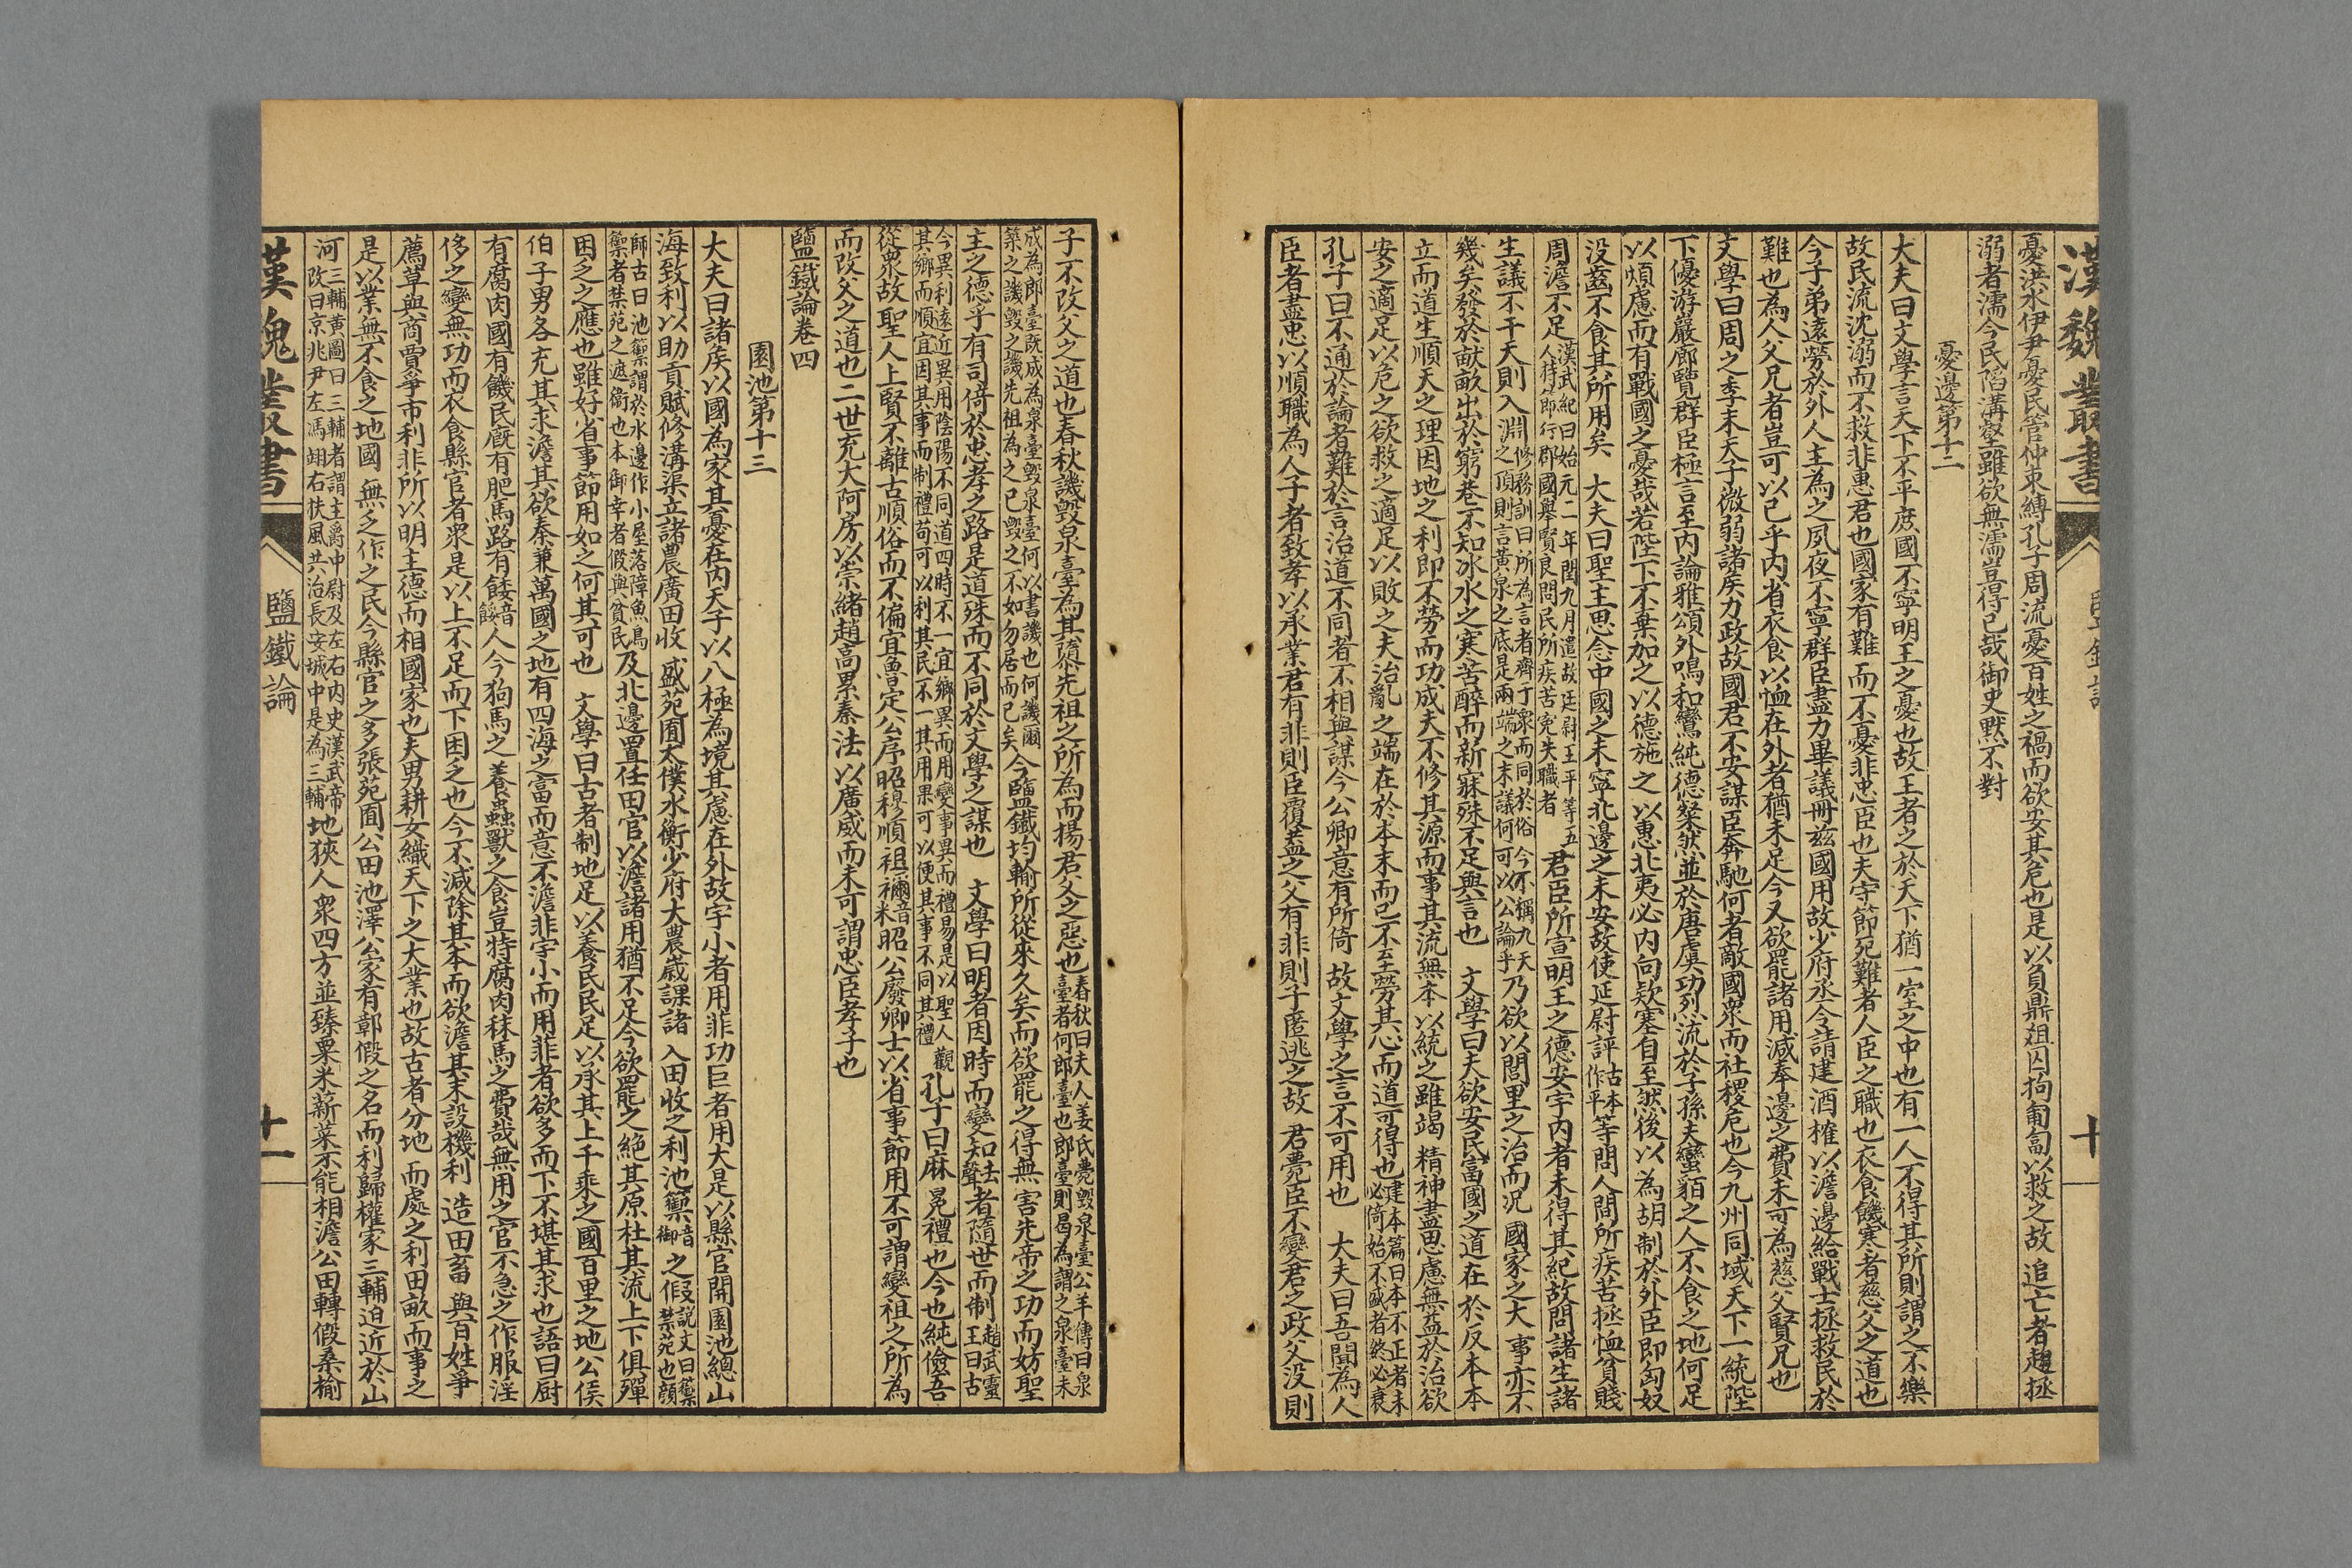 漢魏叢書
十
憂洪水伊尹憂民管仲束縛孔子周流憂百姓之禍而欲安其危也是以負鼎俎囚拘匍匐以救之故追亡者趨拯
溺者濡今民陷溝壑雖欲無濡豈得已哉御史默不對
憂邊第十二
大夫曰文學言天下不平庶國不寧明王之憂也故王者之於天下猶一室之中也有一人不得其所則謂之不樂
故民流沈溺而不救非惠君也國家有難而不憂非忠臣也夫守節死難者人臣之職也衣食饑寒者慈父之道也
今子弟遠勞於外人主為之夙夜不寧群臣盡力畢議冊茲國用故少府丞令請建酒榷以澹邊給戰士拯救民於
難也為人父兄者豈可以已乎內省衣食以恤在外者猶未足今又欲罷諸用減奉邊之費未可為慈父賢兄也
文學曰周之季末天子微弱諸矦力政故國君不安謀臣奔馳何者敵國衆而社稷危也今九州同域天下一統陛
下優游巖廊覽群臣極言至內論雅頌外鳴和鸞純德粲然並於唐虞功烈流於子孫夫蠻貊之人不食之地何足
以煩慮而有戰國之憂哉若陛下不棄加之以德施之以惠北夷必內向欵塞自至然後以為胡制於外臣即匈奴
没齒不食其所用矣　大夫曰聖主思念中國之未寧北邊之未安故使延尉評古本作平等問人間所疾苦拯恤貧賤
周澹不足漢武紀曰始元二年閏九月遣故廷尉王平等五人持節行郡國舉賢良問民所疾苦寃失職者君臣所宣明王之德安宇內者未得其紀故問諸生諸
生議不干天則入淵修務訓曰所為言者齊于衆而同於俗今不稱九天之頂則言黃泉之底是兩端之末議何可以公論乎乃欲以閭里之治而况國家之大事亦不
幾矣發於畎畝出於窮巷不知冰水之寒苦醉而新寐殊不足與言也　文學曰夫欲安民富國之道在於反本本
立而道生順天之理因地之利即不勞而功成夫不修其源而事其流無本以統之雖竭精神盡思慮無益於治欲
安之適足以危之欲救之適足以敗之夫治亂之端在於本末而已不至勞其心而道可得也建本篇曰本不正者末必倚始不盛者終必衰
孔子曰不通於論者難於言治道不同者不相與謀今公卿意有所倚故文學之言不可用也　大夫曰吾聞為人
臣者盡忠以順職為人子者致孝以承業君有非則臣覆葢之父有非則子匿逃之故君薨臣不變君之政父没則
子不改父之道也春秋譏毀泉臺為其隳先祖之所為而揚君父之惡也春秋曰夫人姜氏薨毀泉臺公羊傳曰泉臺者何郎臺也郎臺則曷為謂之泉臺未
成為郎臺既成為泉臺毀泉臺何以書譏也何譏爾築之譏毀之譏先祖為之已毀之不如勿居而已矣今鹽鐵均輸所從來久矣而欲罷之得無害先帝之功而妨聖
主之德乎有司倍於忠孝之路是道殊而不同於文學之謀也　文學曰明者因時而變知去聲者隨世而制趙武靈王曰古
今異利遠近異用陰陽不同道四時不一宜鄉異而用變事異而禮易是以聖人觀其鄉而順宜因其事而制禮苟可以利其民不一其用果可以便其事不同其禮孔子曰麻冕禮也今也純儉吾
從衆故聖人上賢不離古順俗而不偏宜魯定公序昭穆順祖禰音米昭公廢卿士以省事節用不可謂變祖之所為
而改父之道也二世充大阿房以崇緒趙高累秦法以廣威而未可謂忠臣孝子也
鹽鐵論卷四
園池第十三
大夫曰諸矦以國為家其憂在內天子以八極為境其慮在外故宇小者用菲功巨者用大是以縣官開園池總山
海致利以助貢賦修溝渠立諸農廣田收盛苑囿太僕水衡少府大農歲課諸入田收之利池籞音御之假說文曰籞禁苑也顔
師古曰池籞謂於水邊作小屋落障魚鳥籞者禁苑之遮衞也本御幸者假與貧民及北邊置任田官以澹諸用猶不足今欲罷之絶其原杜其流上下俱殫
困乏之應也雖好省事節用如之何其可也　文學曰古者制地足以養民民足以承其上千乘之國百里之地公侯
伯子男各充其求澹其欲秦兼萬國之地有四海之富而意不澹非宇小而用菲者欲多而下不堪其求也語曰厨
有腐肉國有饑民廐有肥馬路有餧音餒人今狗馬之養蟲獸之食豈特腐肉秣馬之費哉無用之官不急之作服淫
侈之變無功而衣食縣官者衆是以上不足而下困乏也今不減除其本而欲澹其末設機利造田畜與百姓爭
薦草與商賈爭市利非所以明主德而相國家也夫男耕女織天下之大業也故古者分地而處之利田畝而事之
是以業無不食之地國無乏作之民今縣官之多張苑囿公田池澤公家有鄣假之名而利歸權家三輔迫近於山
河三輔黃圖曰三輔者謂主爵中尉及左右內史漢武帝改曰京兆尹左馮翊右扶風共治長安城中是為三輔地狹人衆四方並臻粟米薪菜不能相澹公田轉假桑榆
漢魏叢書
鹽鐵論
十一